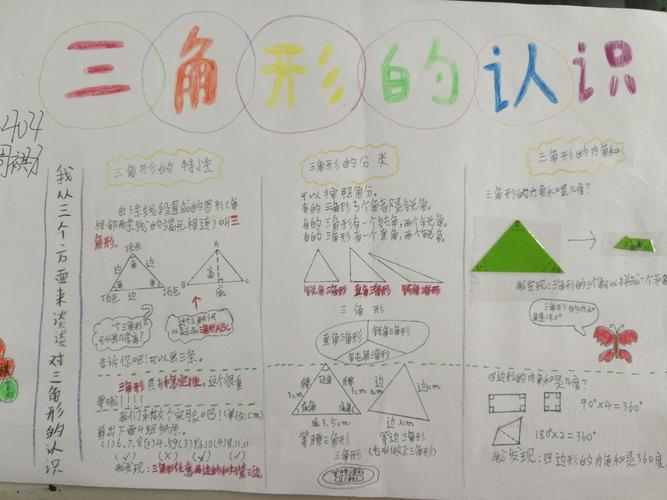 三角形的认识
404
我从三个方面来谈谈对三角形的认识
三角形的特性
由3条线段围成的图形(每
相邻两条线的端点相连)叫三
角形。
顶点
边 角 边
角 角
顶点 边 顶点
A
高
B 底 C
一个三角形
可以画几条高?
三角形ABC
告诉你吧!可以画三条。
三角形具有稳定性。这个很重
要啦!!!!
我们来做个实验吧!(单位:cm)
剪出下面4组纸条。
(1)6,7,8(2)4,5,9(3)3,6,10(4)8,11,11
(✓) (×) (×) (✓)
我发现:三角形任意两边的和大于第三边
三角形的分类
可以按照角分。
有的三角形3个角都是锐角。
有的三角形有一个钝角,两个锐角。
有的三角形有一个直角,两个锐角。
锐角三角形 直角三角形 钝角三角形
三角形
直角三角形 锐角三角形
钝角三角形
顶角
腰 腰
3cm 3cm
底角 底角
底3.5cm
等腰三角形
边 边
边
等边三角形
(也叫做正三角形)
三角形
三角形的内角和
三角形的内角和是几度?
三角形的内角和
是180°
四边形的内角和是几度?
90°×4=360°
180°×2=360°
我发现:四边形的内角和是360度